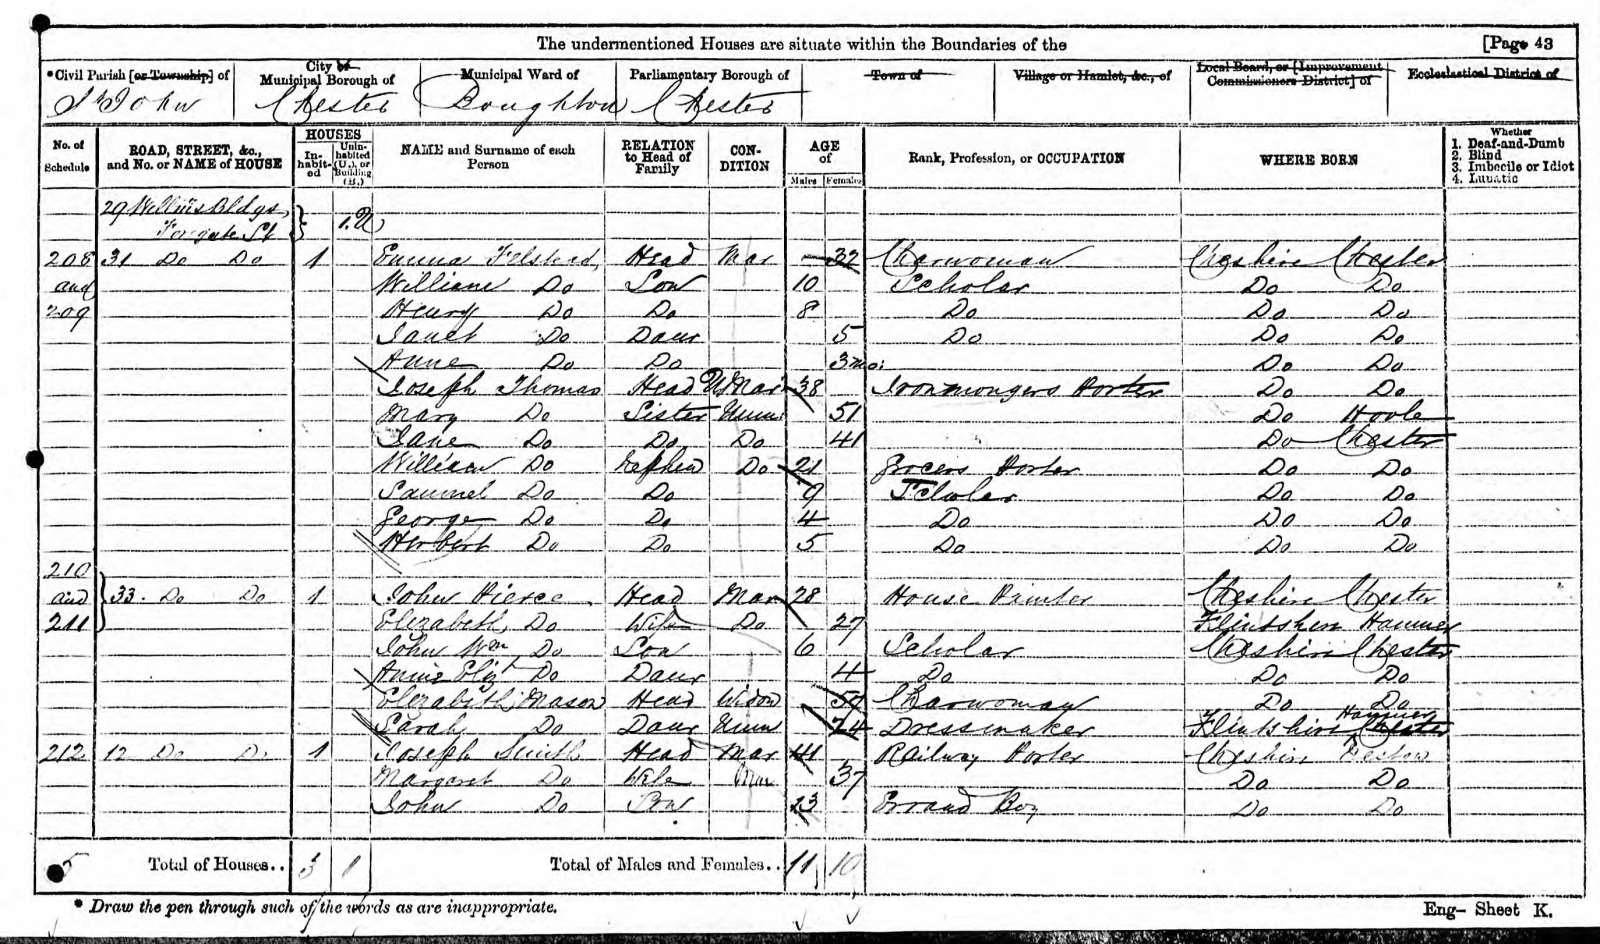 The undermentioned Houses are situate within the Boundaries of the [Page 43
*Civil Parish [or Township] of City or Municipal Borough of Municipal Ward of Parliamentary Borough of Town of Village or Hamlet, &c., of Local Board, or [Improvement Commissioners District] of Ecclesiastical District of
St John Chester Boughton Chester
No. of Schedule ROAD, STREET, &c., and No. or NAME of HOUSE HOUSES In-habit-ed Unin-habited (U.), or Building (B.) NAME and Surname of each Person RELATION to Head of Family CON-DITION AGE of Males Females Rank, Profession, or OCCUPATION WHERE BORN Whether 1. Deaf-and-Dumb 2. Blind 3. Imbecile or Idiot 4. Lunatic
29 Bldgs 1.U
Foregate St
208 31 Do Do 1 Emma Felstead Head Mar 32 Charwoman Cheshire Chester
and William Do Son 10 Scholar Do Do
209 Henry Do Do 8 Do Do Do
Janet Do Daur 5 Do Do Do
Anne Do Do 3mo: Do Do
Joseph Thomas Head UMar 38 Ironmongers Porter Do Do
Mary Do Sister Unm 51 Do Hoole
Jane Do Do Do 41 Do Chester
William Do Nephew Do 21 Grocers Porter Do Do
Samuel Do Do 9 Scholar Do Do
George Do Do 4 Do Do Do
Herbert Do Do 5 Do Do Do
210
and 33. Do Do 1 John Pierce Head Mar 28 House Painter Cheshire Chester
211 Elizabeth Do Wife Do 27 Flintshire Hanmer
John Wm Do Son 6 Scholar Cheshire Chester
Annie Eliz Do Daur 4 Do Do Do
Elizabeth Mason Head Widow Charwoman Do Do
Sarah Do Daur Unm 24 Dressmaker Flintshire Hanmer Chester
212 12 Do Do 1 Joseph Smith Head Mar 41 Railway Porter Cheshire
Margaret Do Wife Mar 37 Do Do
John Do Son 13 Errand Boy Do Do
5 Total of Houses.. 3 1 Total of Males and Females.. 11 10
* Draw the pen through such of the words as are inappropriate. Eng- Sheet K.